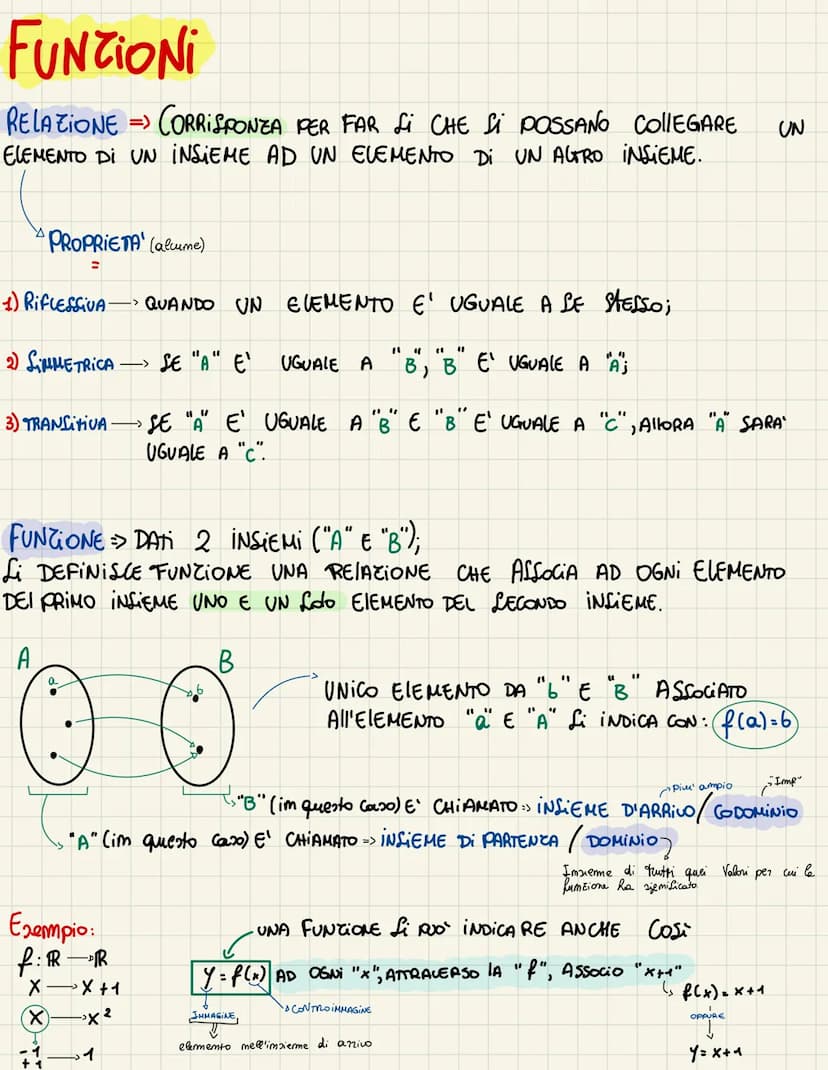 FUNZIONI
RELAZIONE => CORRISPONZA PER FAR SI CHE SI POSSANO COLLEGARE UN
ELEMENTO DI UN INSIEME AD UN ELEMENTO DI UN ALTRO INSIEME.
PROPRIETA' (alcune)
1) RIFLESSIVA → QUANDO UN ELEMENTO E' UGUALE A SE STESSO;
2) SIMMETRICA → SE "A" E' UGUALE A "B", "B" E' UGUALE A "A";
3) TRANSITIVA → SE "A" E' UGUALE A "B" E "B" E' UGUALE A "C", ALLORA "A" SARA'
UGUALE A "C".
FUNZIONE => DATI 2 INSIEMI ("A" E "B");
SI DEFINISCE FUNZIONE UNA RELAZIONE CHE ASSOCIA AD OGNI ELEMENTO
DEL PRIMO INSIEME UNO E UN SOLO ELEMENTO DEL SECONDO INSIEME.
A B
a b
UNICO ELEMENTO DA "b" E "B" ASSOCIATO
ALL'ELEMENTO "a" E "A" SI INDICA CON: f(a)=b
più ampio
"B" (in questo caso) E' CHIAMATO => INSIEME D'ARRIVO / CODOMINIO
"A" (in questo caso) E' CHIAMATO => INSIEME DI PARTENZA / DOMINIO
Insieme di tutti quei valori per cui la
funzione ha significato
Esempio:
UNA FUNZIONE SI PUO' INDICARE ANCHE COSI'
f: ℝ → ℝ
y = f(x) AD OGNI "x", ATTRAVERSO LA "f", ASSOCIO "x+1"
x → x+1
f(x) = x+1
x → x²
IMMAGINE
CONTROIMMAGINE
OPPURE
elemento nell'insieme di arrivo
-1
+1 → 1
y = x+1